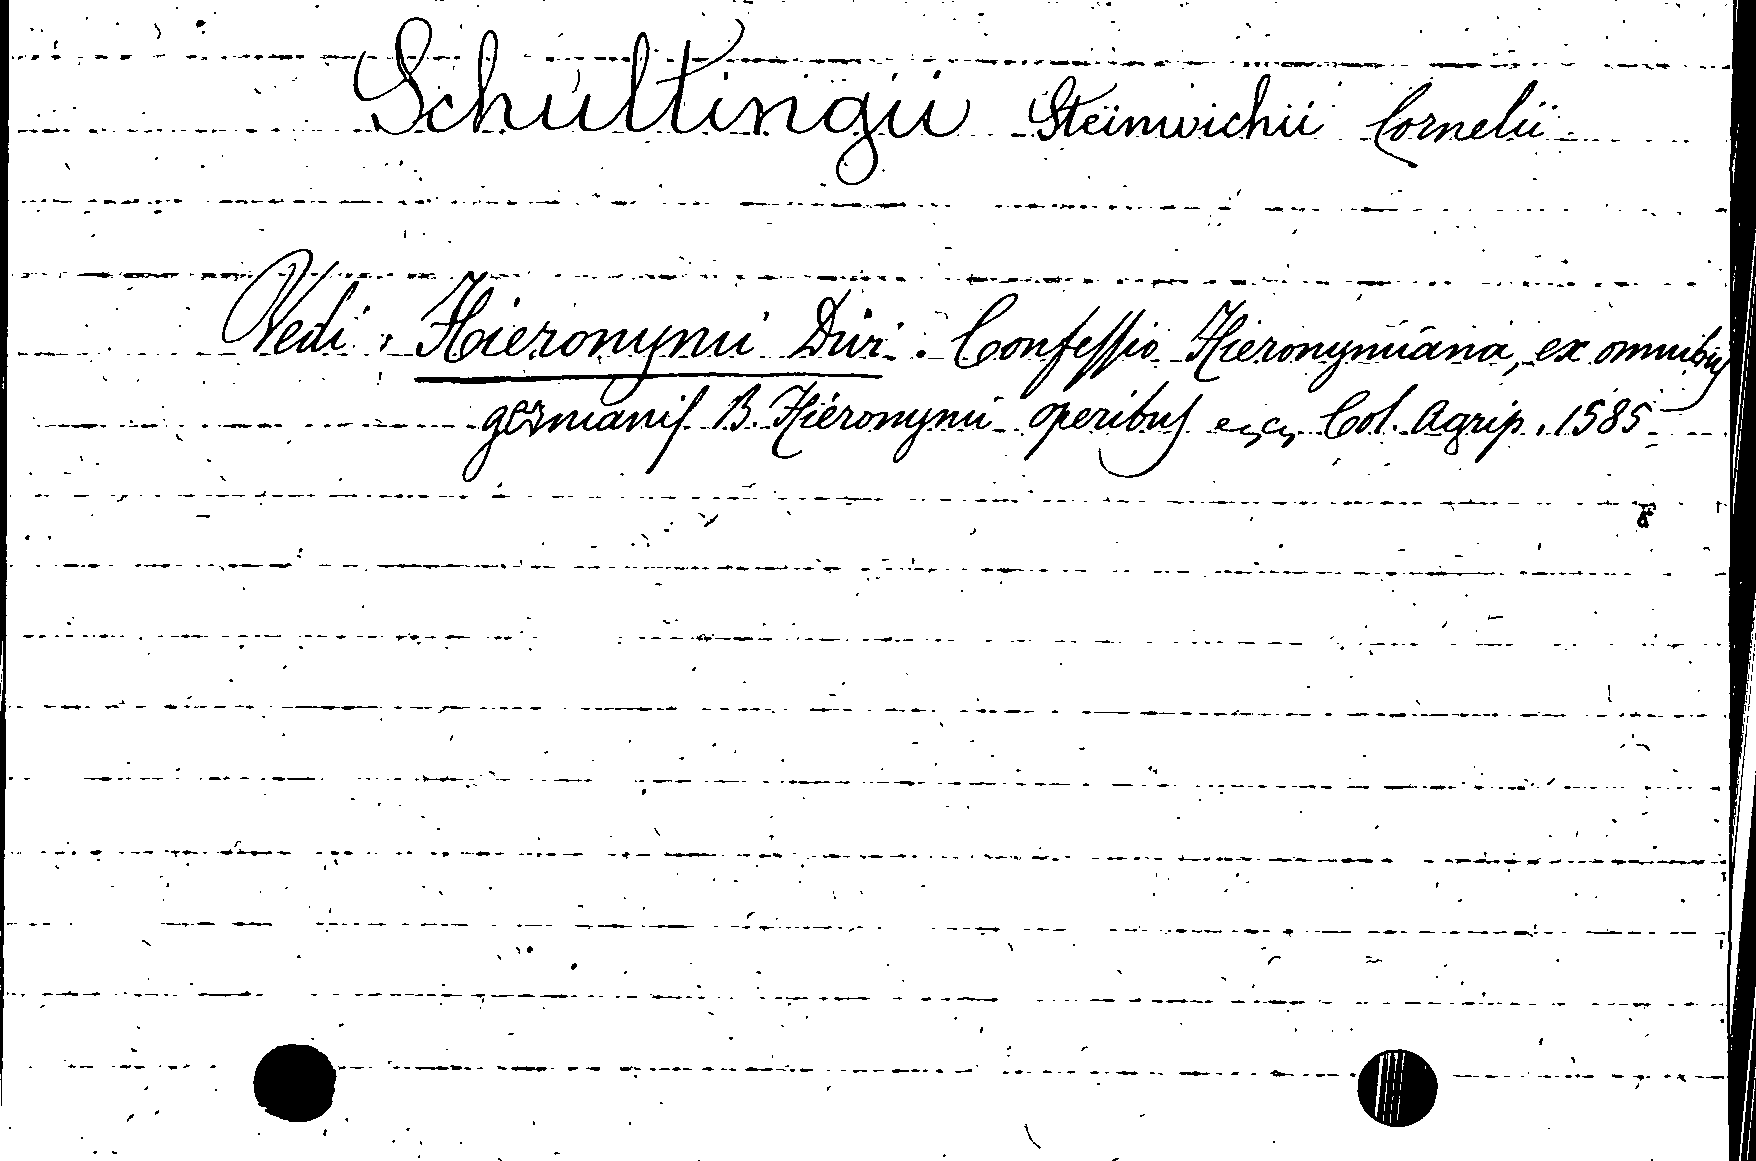 Schultingii Steinwichii Cornelii
Vedi : Hieronymi Divi. Confessio Hieronymiana, ex omnibus
germanis B. Hieronymi operibus Col. Agrip. 1585